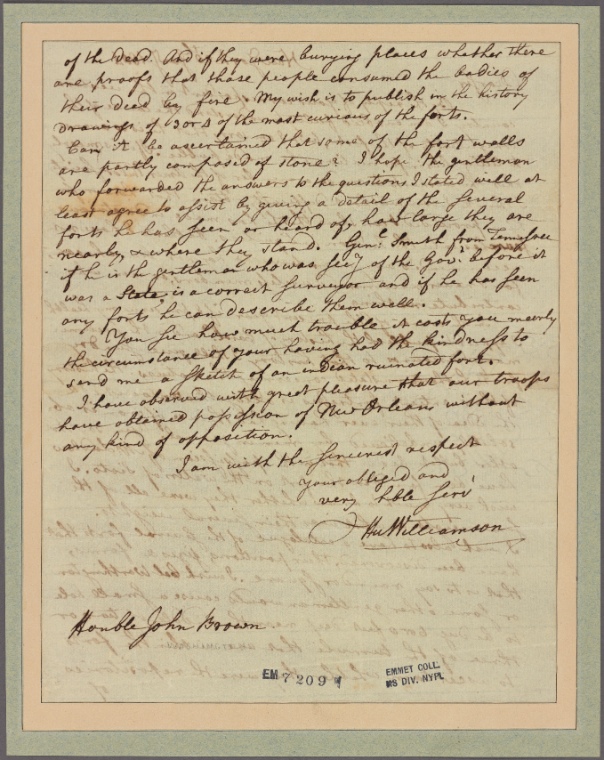 of the Dead. And if they were burying places whether there
are proofs that those people consumed the bodies of
their dead by fire. My wish is to publish in the history
Drawings of 3 or 4 of the most curious of the forts.
Can it be ascertained that some of the fort walls
are partly composed of stone? I hope the gentleman
who forwarded the answers to the questions I stated will at
least agree to assist by giving a detail of the several
forts he has seen or heard of, how large they are
nearly, & where they stand. Genl. Smith from Tennessee
if he is the gentleman who was Secy of the Govt. before it
was a State, is a correct Surveyor and if he has seen
any forts he can describe them well.
You see how much trouble it costs you meerly
the circumstance of your having had the kindness to
send me a Sketch of an indian ruinated fort.
I have observed with great pleasure that our troops
have obtained possession of New Orleans without
any kind of opposition.
I am with the Sincerest respect
your obliged and
very hble Servt
Hu Williamson
Honble John Brown
EM 7209
EMMET COLL.
MS DIV. NYPL